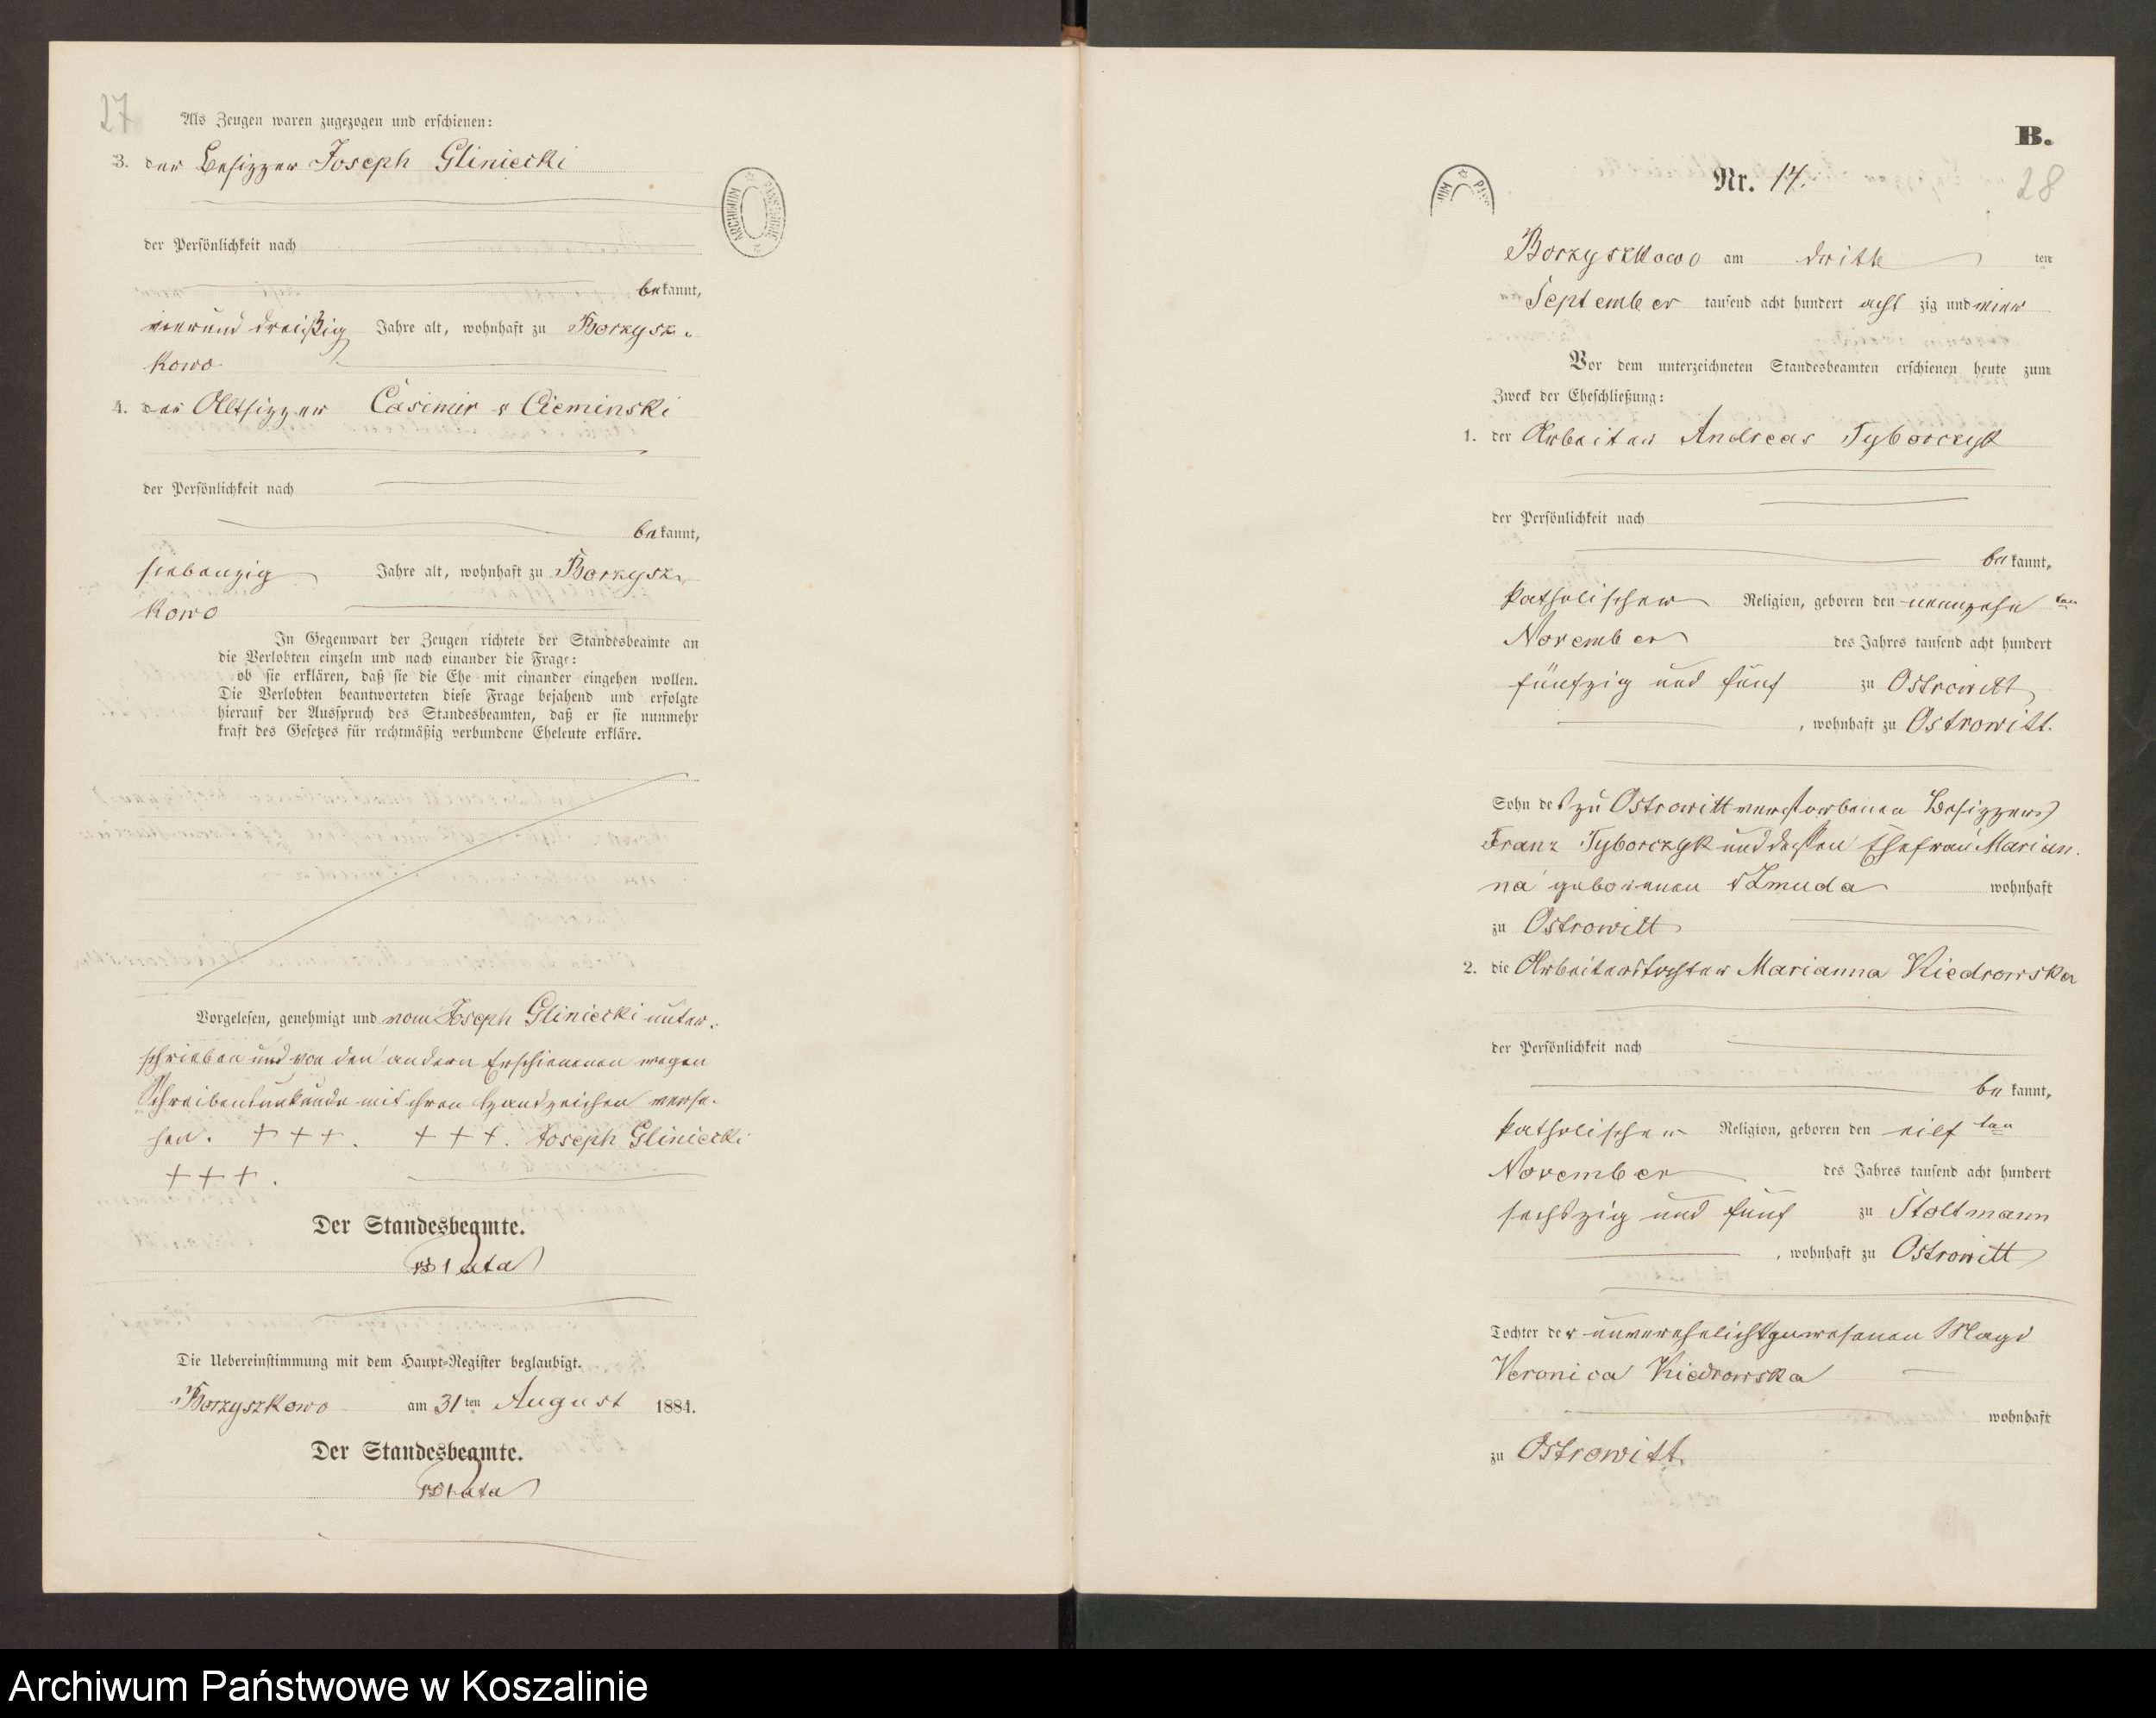 27
Als Zeugen waren zugezogen und erschienen:
3. der Besizzer Joseph Gliniecki
der Persönlichkeit nach
bekannt,
vierund dreißig Jahre alt, wohnhaft zu Borzysz-
kowo
4. der Altsizzer Casimir v Cieminski
der Persönlichkeit nach
bekannt,
siebenzig Jahre alt, wohnhaft zu Borzysz-
kowo
In Gegenwart der Zeugen richtete der Standesbeamte an
die Verlobten einzeln und nach einander die Frage:
ob sie erklären, daß sie die Ehe mit einander eingehen wollen.
Die Verlobten beantworteten diese Frage bejahend und erfolgte
hierauf der Ausspruch des Standesbeamten, daß er sie nunmehr
kraft des Gesetzes für rechtmäßig verbundene Eheleute erkläre.
Vorgelesen, genehmigt und vom Joseph Gliniecki unter-
schrieben und von den andern Erschienenen wegen
Schreibenunkunde mit ihren Handzeichen verse-
hen. +++. +++. Joseph Gliniecki
+++.
Der Standesbeamte.
Die Uebereinstimmung mit dem Haupt-Register beglaubigt.
Borzyszkowo am 31ten August 1884.
Der Standesbeamte.
ARCHIWUM PAŃSTWOWE
B.
Nr. 14.
28
Borzyszkowo am dritte ten
September tausend acht hundert acht zig und vier
Vor dem unterzeichneten Standesbeamten erschienen heute zum
Zweck der Eheschließung:
1. der Arbeiter Andreas Tyborczyk
der Persönlichkeit nach
bekannt,
katholischer Religion, geboren den neunzehn ten
November des Jahres tausend acht hundert
fünfzig und fünf zu Ostrowitt
, wohnhaft zu Ostrowitt.
Sohn des zu Ostrowitt verstorbenen Besizzers
Franz Tyborczyk und dessen Ehefrau Marian-
na geborenen v Zmuda wohnhaft
zu Ostrowitt
2. die Arbeiterstochter Marianna Kiedrowska
der Persönlichkeit nach
bekannt,
katholischer Religion, geboren den eilf ten
November des Jahres tausend acht hundert
sechszig und fünf zu Stoltmann
, wohnhaft zu Ostrowitt
Tochter der unverehelicht gewesenen Magd
Veronica Kiedrowska
wohnhaft
zu Ostrowitt.
Archiwum Państwowe w Koszalinie